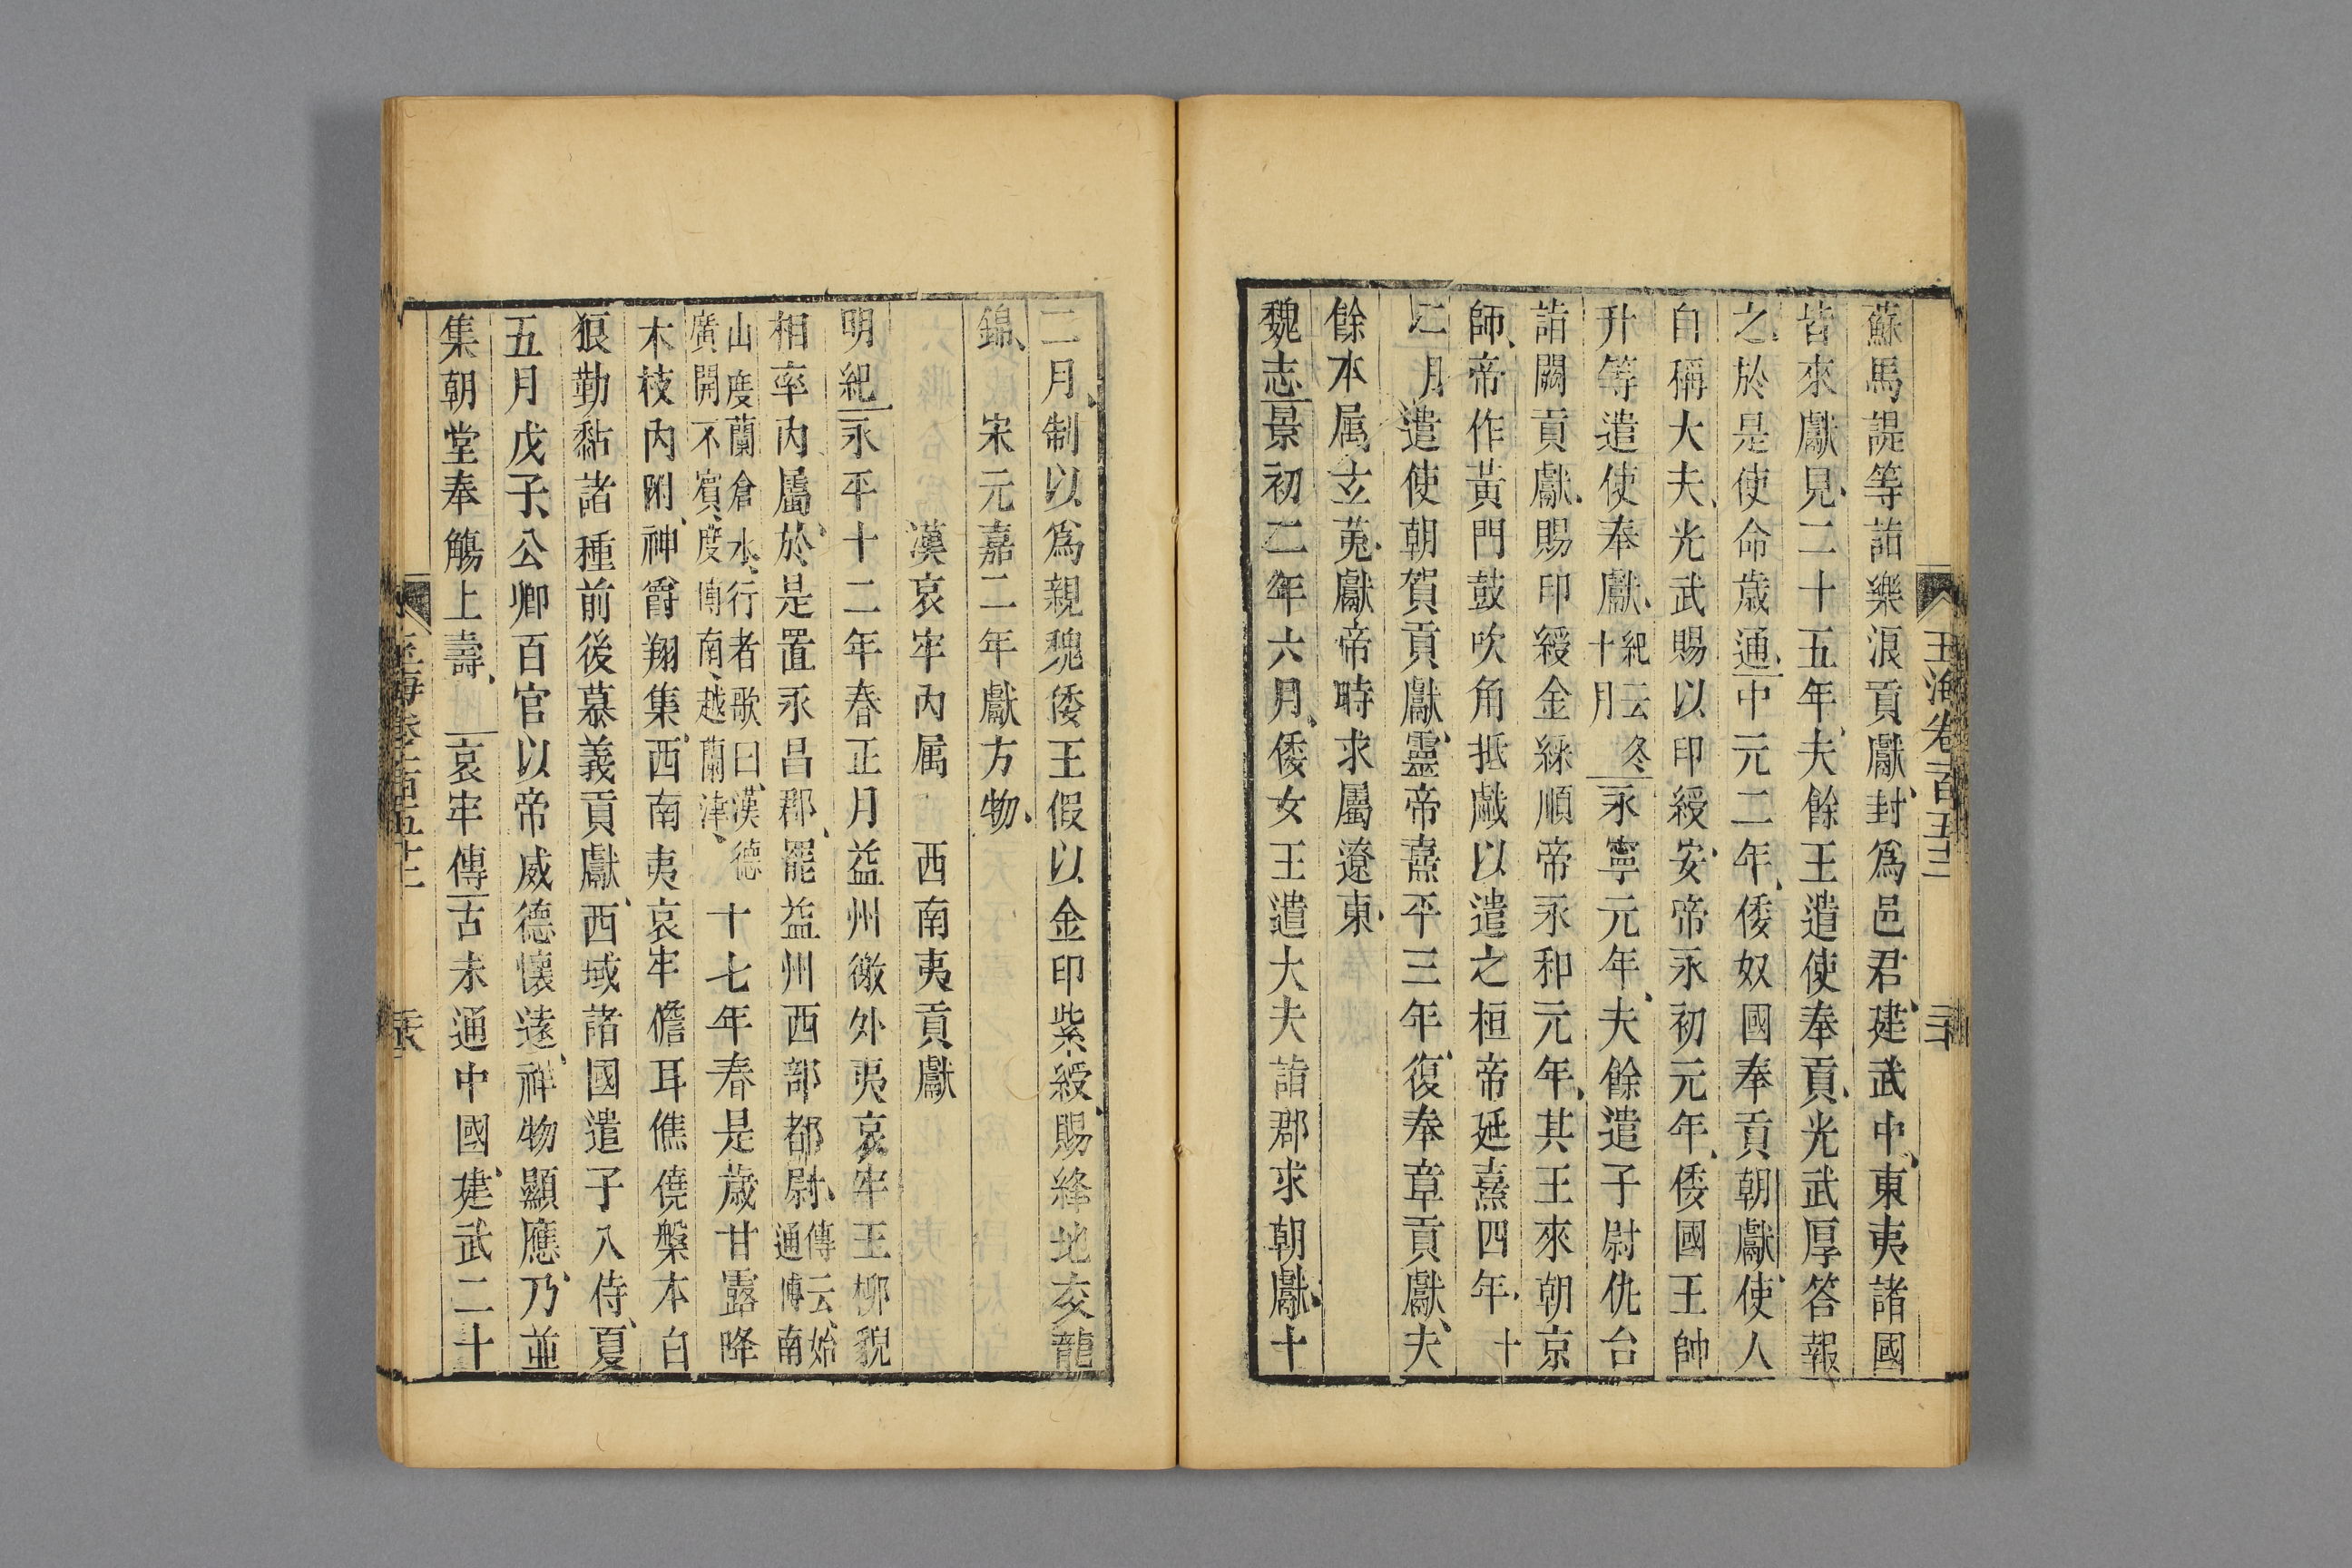 蘇馬諟等詣樂浪貢獻封爲邑君建武中東夷諸國
皆來獻見二十五年夫餘王遣使奉貢光武厚答報
之於是使命歲通中元二年倭奴國奉貢朝獻使人
自稱大夫光武賜以印綬安帝永初元年倭國王帥
升等遣使奉獻紀云冬十月永寧元年夫餘遣子尉仇台
詣闕貢獻賜印綬金綵順帝永和元年其王來朝京
師帝作黃門鼓吹角抵戲以遣之桓帝延熹四年十
二月遣使朝賀貢獻靈帝熹平三年復奉章貢獻夫
餘本属玄菟獻帝時求屬遼東
魏志景初二年六月倭女王遣大夫詣郡求朝獻十
二月制以爲親魏倭王假以金印紫綬賜絳地交龍
錦宋元嘉二年獻方物
漢哀牢內属 西南夷貢獻
明紀永平十二年春正月益州徼外夷哀牢王柳貌
相率內屬於是置永昌郡罷益州西部都尉傳云始通博南
山度蘭倉水行者歌曰漢德廣開不賓度博南越蘭津十七年春是歲甘露降
木枝內附神爵翔集西南夷哀牢儋耳僬僥槃木白
狼動黏諸種前後慕義貢獻西域諸國遣子入侍夏
五月戊子公卿百官以帝威德懷遠祥物顯應乃並
集朝堂奉觴上壽哀牢傳古未通中國建武二十